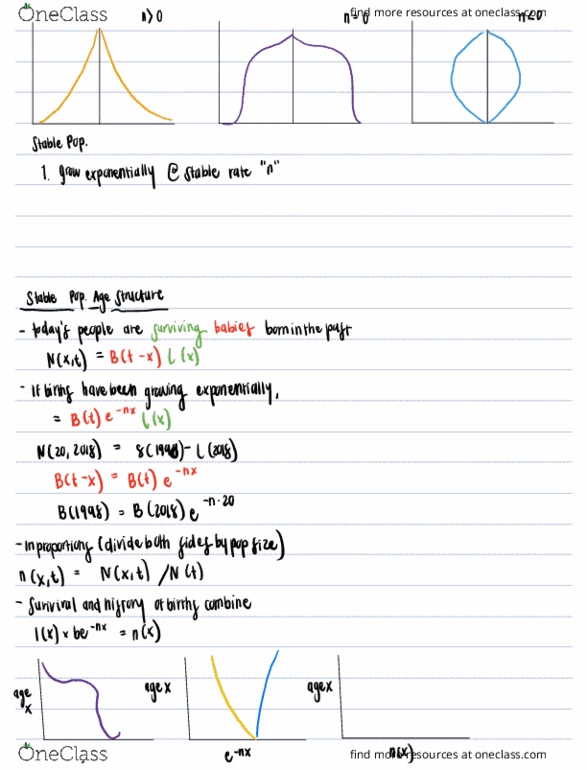 OneClass
find more resources at oneclass.com
n>0
n=0
n<0
Stable Pop.
1. grow exponentially @ stable rate "n"
Stable Pop. Age Structure
- today's people are surviving babies born in the past
N(x,t) = B(t-x) L(x)
- If births have been growing exponentially,
= B(t) e^-nx L(x)
N(20, 2018) = 8(1998) - L(2018)
B(t-x) = B(t) e^-nx
B(1998) = B(2018) e^-n·20
- In proportions (divide both sides by pop size)
n(x,t) = N(x,t) / N(t)
- Survival and history of births combine
l(x) × be^-nx = n(x)
age x
age x
age x
e^-nx
n(x)
OneClass
find more resources at oneclass.com